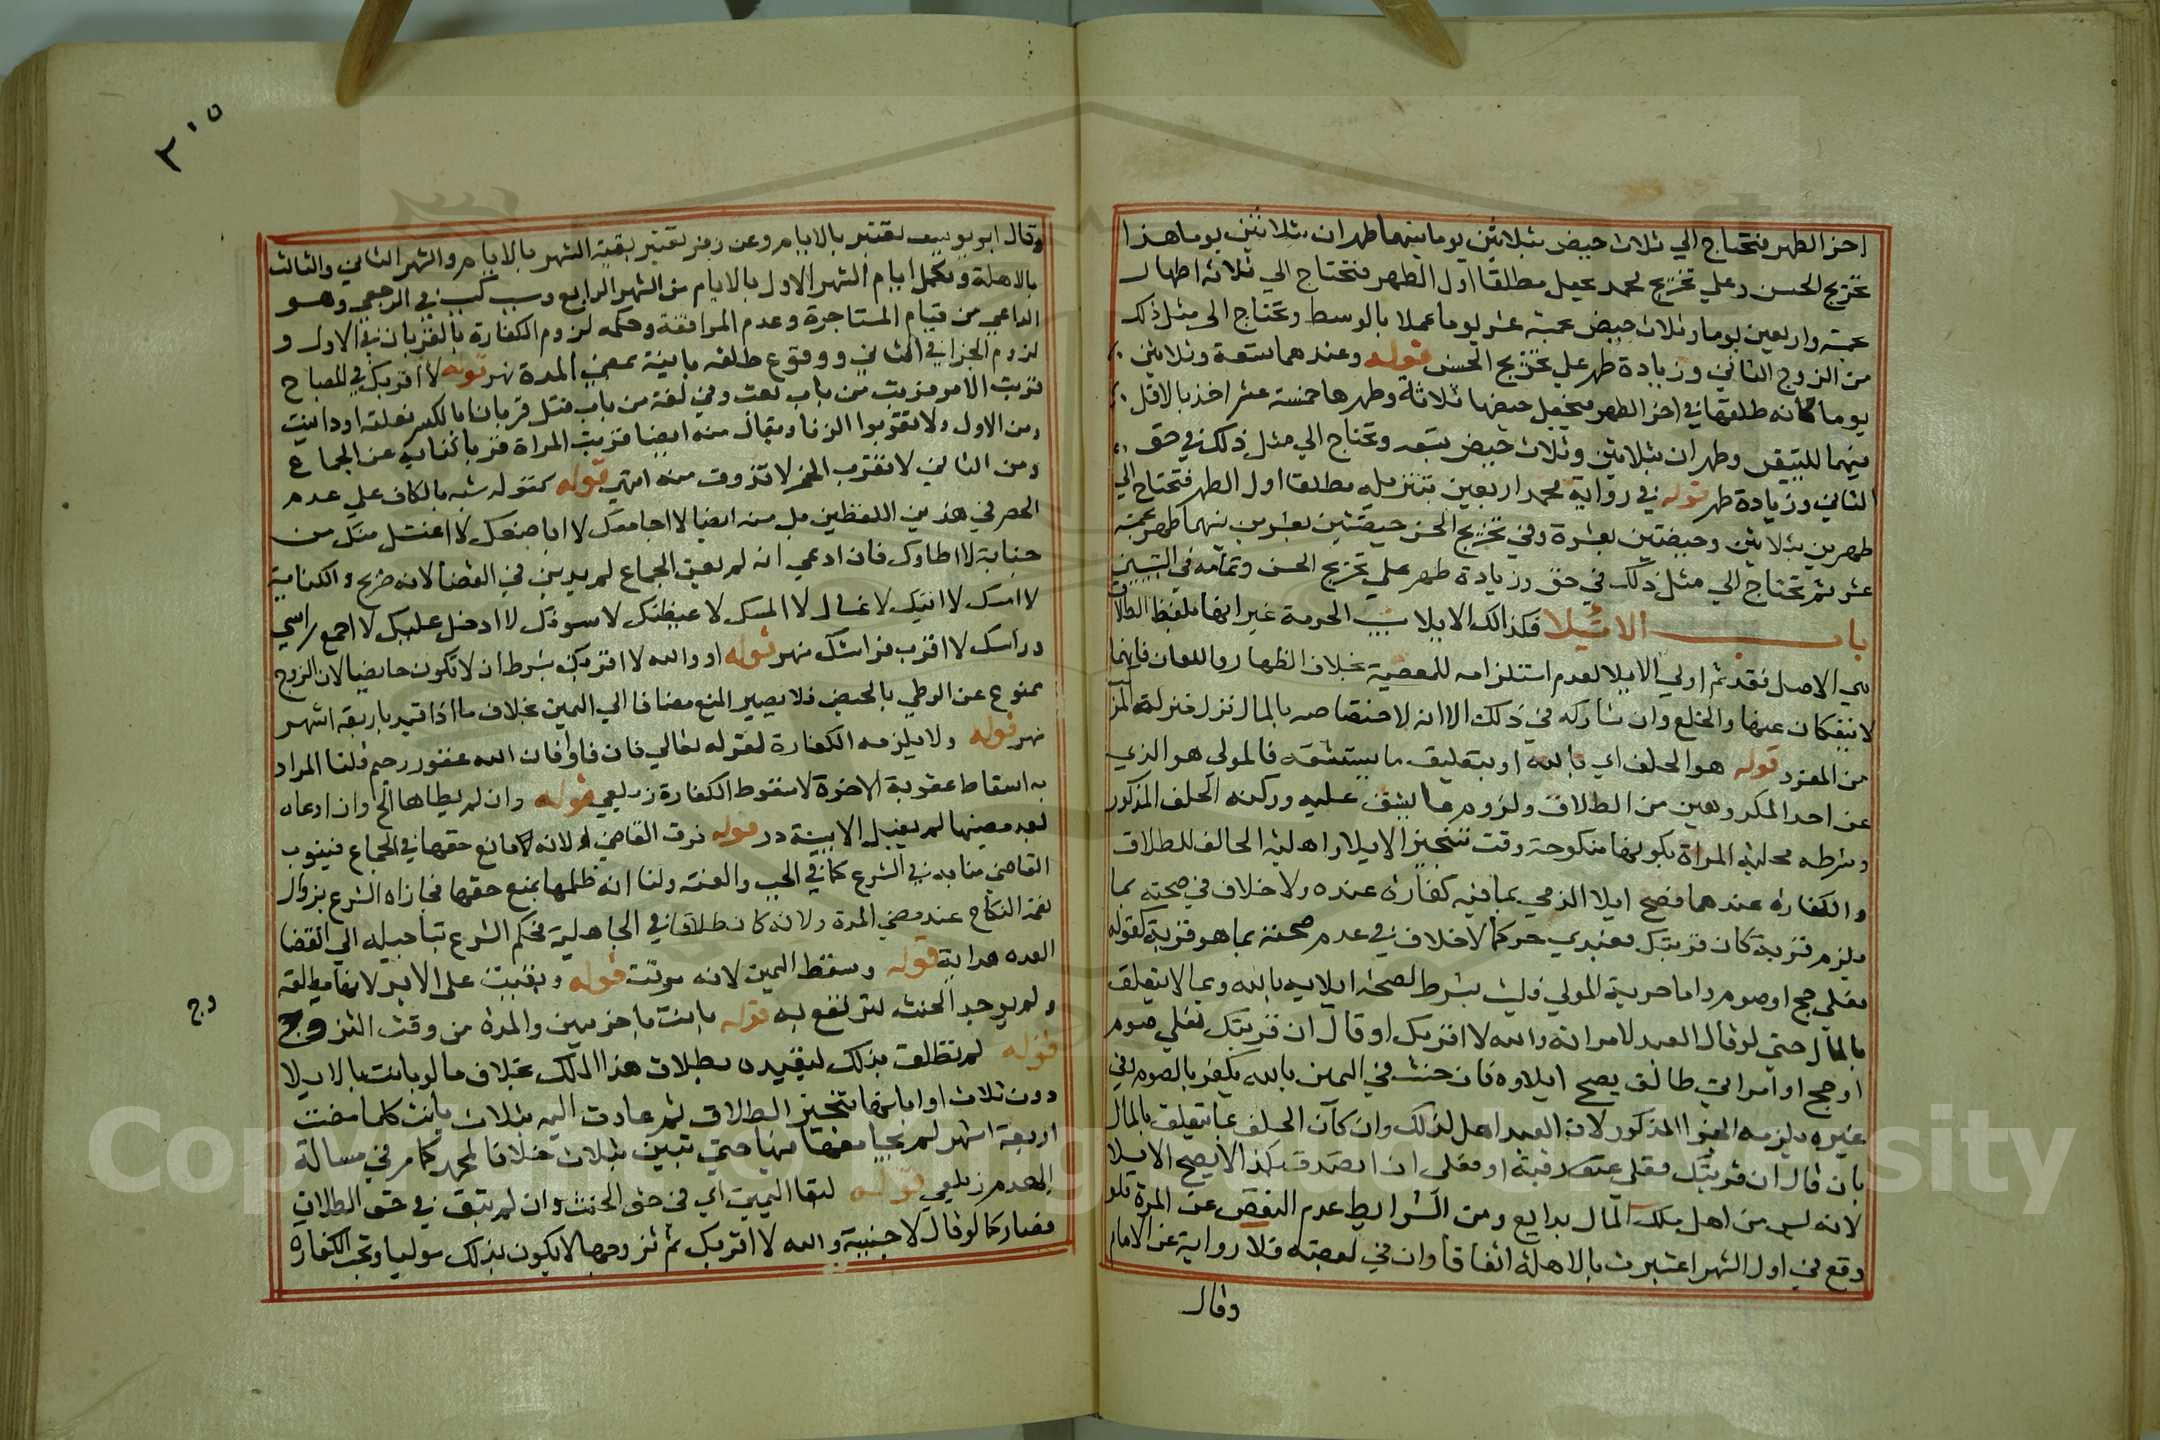 اخر الطهر فتحتاج الي ثلاث حيض بثلاثين يوما بينهما طهران بثلاثين يوما هذا
تخريج الحسن وعلي تخريج محمد يجعل مطلقا اول الطهر فتحتاج الي ثلاثة اطهار
بخمسة واربعين يوما وثلاث حيض بخمسة عشر يوما عملا بالوسط وتحتاج الي مثل ذلك
من الزوج الثاني وزيادة طهر علي تخريج الحسن قوله وعندهما بتسعة وثلاثين
يوما كانه طلقها في اخر الطهر فيجعل حيضها ثلاثة وطهرها خمسة عشر اخذ بالاقل
فيهما للتيقن وطهران بثلاثين وثلاث حيض بتسعة وتحتاج الي مثل ذلك في حق
الثاني وزيادة طهر قوله في رواية محمد اربعين تنزيله مطلقا اول الطهر فتحتاج الي
طهرين بثلاثين وحيضتين بعشرة وفي تخريج الحسن حيضتين بعشرين بينهما طهر بخمسة
عشر ثم تحتاج الي مثل ذلك في حق وزيادة طهر علي تخريج الحسن وتمامه في التبيين
باب الايلا فكذالك الايلا سبب الحرمة غير انها بلفظ الطلاق
هي الاصل فقدم ثم اولي الايلا لعدم استلزامه للمعصية بخلاف الظهار واللعان فانهما
لا ينفكان عنها والخلع وان شاركه في ذلك الا انه لاختصاصه بالمال نزل منزلة المركب
من المفرد قوله هو الحلف اي بالله او بتعليق ما يستشقه فالمولي هو الذي
عن احد المكروهين من الطلاق ولزوم ما يشق عليه وركنه الحلف المذكور
وشرطه محلية المراة بكونها منكوحة وقت تنجيز الايلا واهلية الحالف للطلاق
والكفارة عندهما فصح ايلا الذمي بما فيه كفارة عنده ولا خلاف في صحته بما
يلزم قربة كان قربتك فعبدي حر كما لا خلاف في عدم صحته بما هو قربة كقوله
فعلي حج او صوم واما حرية المولي فليست بشرط لصحة ايلايه بالله وبما لا يتعلق
بالمال حتي لو قال العبد لامراته والله لا اقربك او قال ان قربتك فعلي صوم
او حج او امراتي طالق يصح ايلاوه فان حنث في اليمين بالله يكفر بالصوم وفي
غيره يلزمه الجزا المذكور لان العبد اهل لذلك وان كان الحلف بما يتعلق بالمال
بان قال ان قربتك فعلي عتق رقبة او فعلي ان اتصدق بكذا لا يصح الايلا
لانه ليس من اهل ملك المال بدايع ومن الشرايط عدم النقص عن المدة فلو
وقع في اول الشهر اعتبرت بالاهلة اتفاقا وان في بعضه فلا رواية عن الامام
وقال
٣٠٥
وقال ابو يوسف تعتبر بالايام وعن زفر تعتبر بقية الشهر بالايام والشهر الثاني والثالث
بالاهلة وتكمل ايام الشهر الاول بالايام من الشهر الرابع وسببه كسبب في الرجعي وهو
الداعي من قيام المشاجرة وعدم الموافقة وحكمه لزوم الكفارة بالقربان في الاول و
لزوم الجزا في الثاني ووقوع طلقة باينة بمضي المدة نهر قوله لا اقربك في المصباح
قربت الامر قربت من باب تعب وفي لغة من باب قتل قربانا بالكسر فعلته او دانيت
ومن الاول ولا تقربوا الزنا ويقال منه ايضا قربت المراة قربانا كناية عن الجماع
ومن الثاني لا تقرب الخمر لا تذوق منه انتهي قوله كقوله شبه بالكاف علي عدم
الحصر في هذين اللفظين بل منه ايضا لا اجامعك لا اباضعك لا اغتسل منك من
جنابة لا اطاوك فان ادعي انه لم يعن الجماع لم يدين في القضا لانه صريح والكناية
لا امسك لا اتيك لا غشاك لا المسك لا غيظنك لا سوءنك لا ادخل عليك لا اجمع راسي
وراسك لا اقرب فراشك نهر قوله او والله لا اقربك بشرط ان لا تكون حايضا لان الزوج
ممنوع عن الوطي بالحيض فلا يصير المنع مضافا الي اليمين بخلاف ما اذا قيد باربعة اشهر
نهر قوله ولا يلزمه الكفارة لقوله تعالي فان فاوا فان الله غفور رحيم قلنا المراد
به اسقاط عقوبة الاخرة لا سقوط الكفارة زيلعي قوله وان لم يطاها الخ وان ادعاه
بعد مضيها لم يقبل الا ببينة در قوله فرق القاضي لانه مانع حقها في الجماع فينوب
القاضي منابه في الشرع كما في الجب والعنة ولنا انه ظلمها بمنع حقها فجازاه الشرع بزوال
نعمة النكاح عند مضي المدة ولانه كان طلاقا في الجاهلية فحكم الشرع بتاجيله الي انقضا
العدة هداية قوله وسقط اليمين لانه موقت قوله وبقيت علي الابد لانها مطلقة
ولم يوجد الحنث لترتفع به قوله بانت باخريين والمدة من وقت التزوج
وج
قوله لم تطلق بذلك لتقيده بطلاق هذا الملك بخلاف ما لو بانت بالايلا
دون ثلاث او ابانها بتنجيز الطلاق ثم عادت اليه بثلاث بانت كلما مضت
اربعة اشهر لم يجامعها فيها حتي تبين بثلاث خلافا لمحمد كما مر في مسالة
الهدم زيلعي قوله لبقا اليمين اي في حق الحنث وان لم تبق في حق الطلاق
فصار كما لو قال لاجنبية والله لا اقربك ثم تزوجها لا يكون بذلك موليا وتجب الكفارة